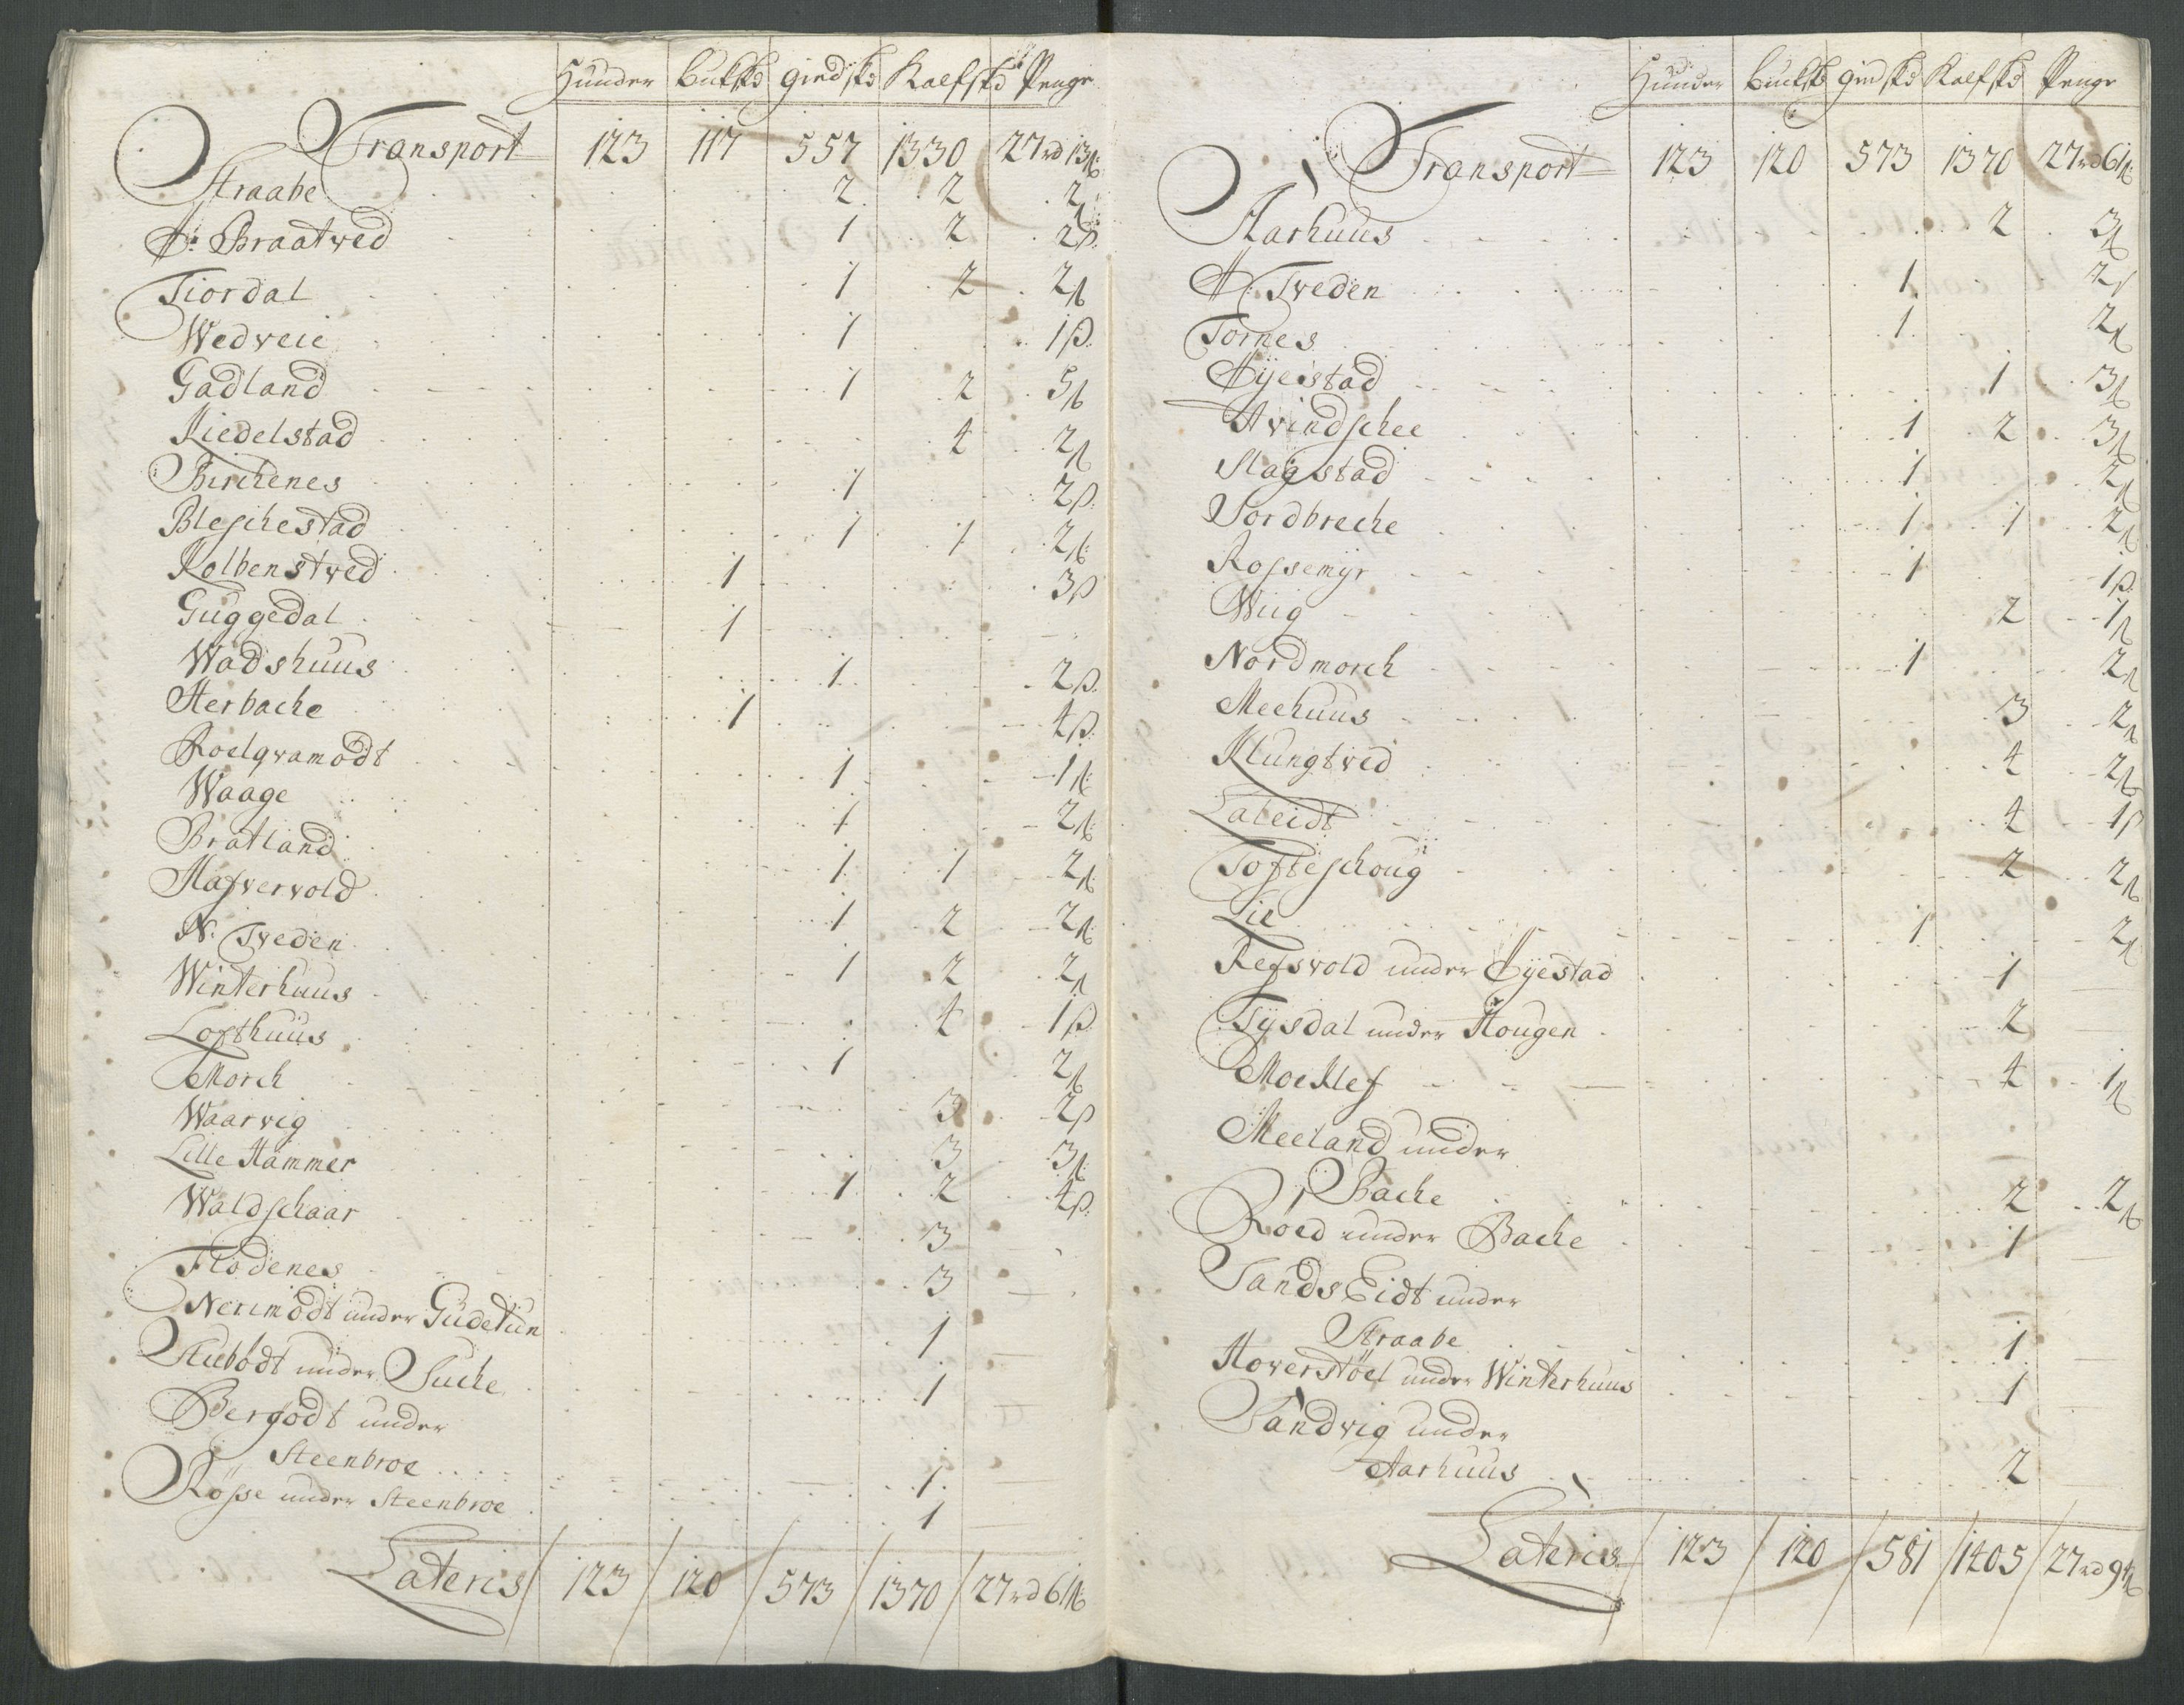 Hunder Bukskd giedskd Kalfskd Penge
Transport 123 117 557 1330 27 rd 13 ß
Straabe 2 2 2 ß
A. Braatved 1 2 2 ß
Fiordal 1 2 2 ß
Wedveie 1 1 ß
Gadland 1 2 5 ß
Kiedelstad 4 2 ß
Birchenes 1 2 ß
Bleschestad 1 1 2 ß
Kolbenstved 1 3 ß
Guggedal 1
Wadshuus 1 2 ß
Herbache 1 4 ß
Roelqvamodt 1 1 ß
Waage 1 2 ß
Bratland 1 1 2 ß
Hafvervold 1 2 2 ß
N. Tveden 1 2 2 ß
Winterhuus 4 1 ß
Lofthuus 1 2 ß
Morch 3 2 ß
Waarvig 3 3 ß
Lille Hammer 1 2 4 ß
Waldschaar 3
Flodenes 3
Nerimodt under Gudetun 1
Stubodt under Suche 1
Bergodt under
Steenbroe 1
Rosse under Steenbroe 1
Lateris 123 120 573 1370 27 rd 6 ß
Hunder Bukskd giedskd Kalfskd Penge
Transport 123 120 573 1370 27 rd 6 ß
Aarhuus 2 3 ß
A. Tveden 1 2 ß
Tornes 1 2 ß
Øyestad 1 3 ß
Hvindschee 1 2 3 ß
Slagstad 1 2 ß
Jordbreche 1 1 2 ß
Rossemyr 1 1 ß
Wiig 2 1 ß
Nordmorch 1 2 ß
Meehuus 3 2 ß
Klungtved 4 2 ß
Laleidt 4 1 ß
Tofteschoug 2 2 ß
Lie 1 2 ß
Refsvold under Øyestad 1
Tysdal under Hougen 2
Moe Klef 4 1 ß
Meeland under
Bache 2 2 ß
Roed under Bache 1
Sands Eidt under
Straabe 1
Hoverstöel under Winterhuus 1
Sandvig under
Aarhuus 2
Lateris 123 120 581 1405 27 rd 9 ß